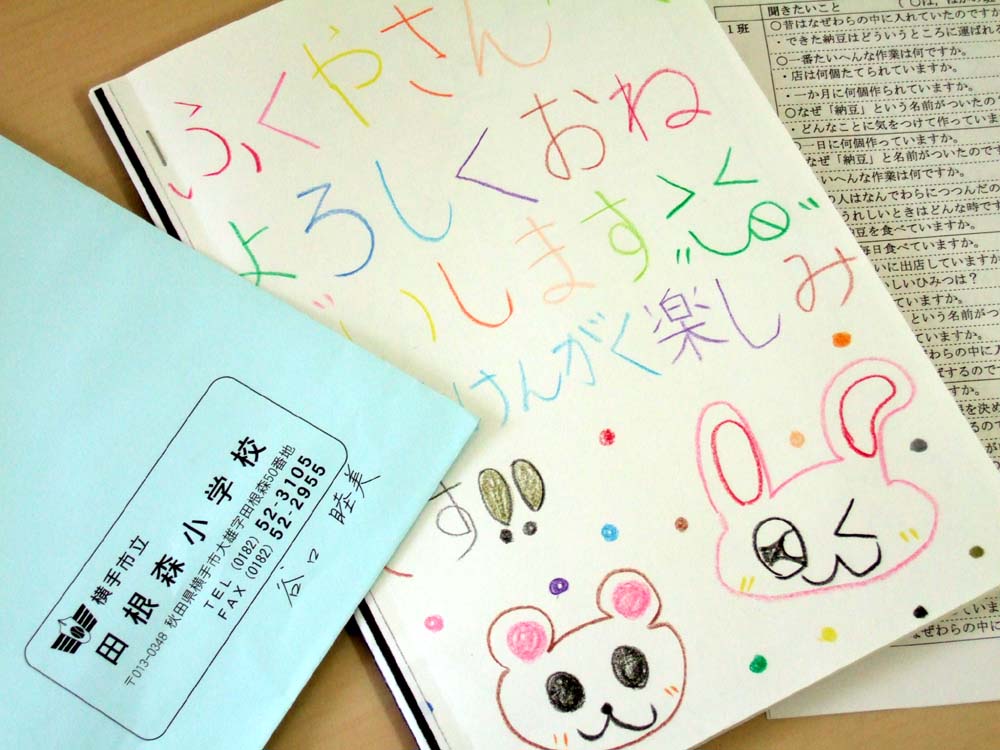 ふくやさん
よろしくおね
がいします
けんがく楽しみ
す!!
横手市立
田根森小学校
〒013-0348 秋田県横手市大雄字田根森50番地
TEL (0182) 52-3105
FAX (0182) 52-2955
谷口 睦美
聞きたいこと
1班
○昔はなぜわらの中に入れていたのですか
・できた納豆はどういうところに運ばれる
○一番たいへんな作業は何ですか。
・店は何個たてられていますか。
・一か月に何個作られていますか。
○なぜ「納豆」という名前がついたの
・どんなことに気をつけて作っていま
○一日に何個作っていますか。
なぜ「納豆」と名前がついたのです
いへんな作業は何ですか。
の人はなんでわらにつつんだの
うれしいときはどんな時です
豆を食べていますか。
毎日食べていますか。
いに出店しています
しいひみつは?
ていますか。
という名前がつ
ぜわらの中に入
ぜするのです
すか。
なぜわらの中に